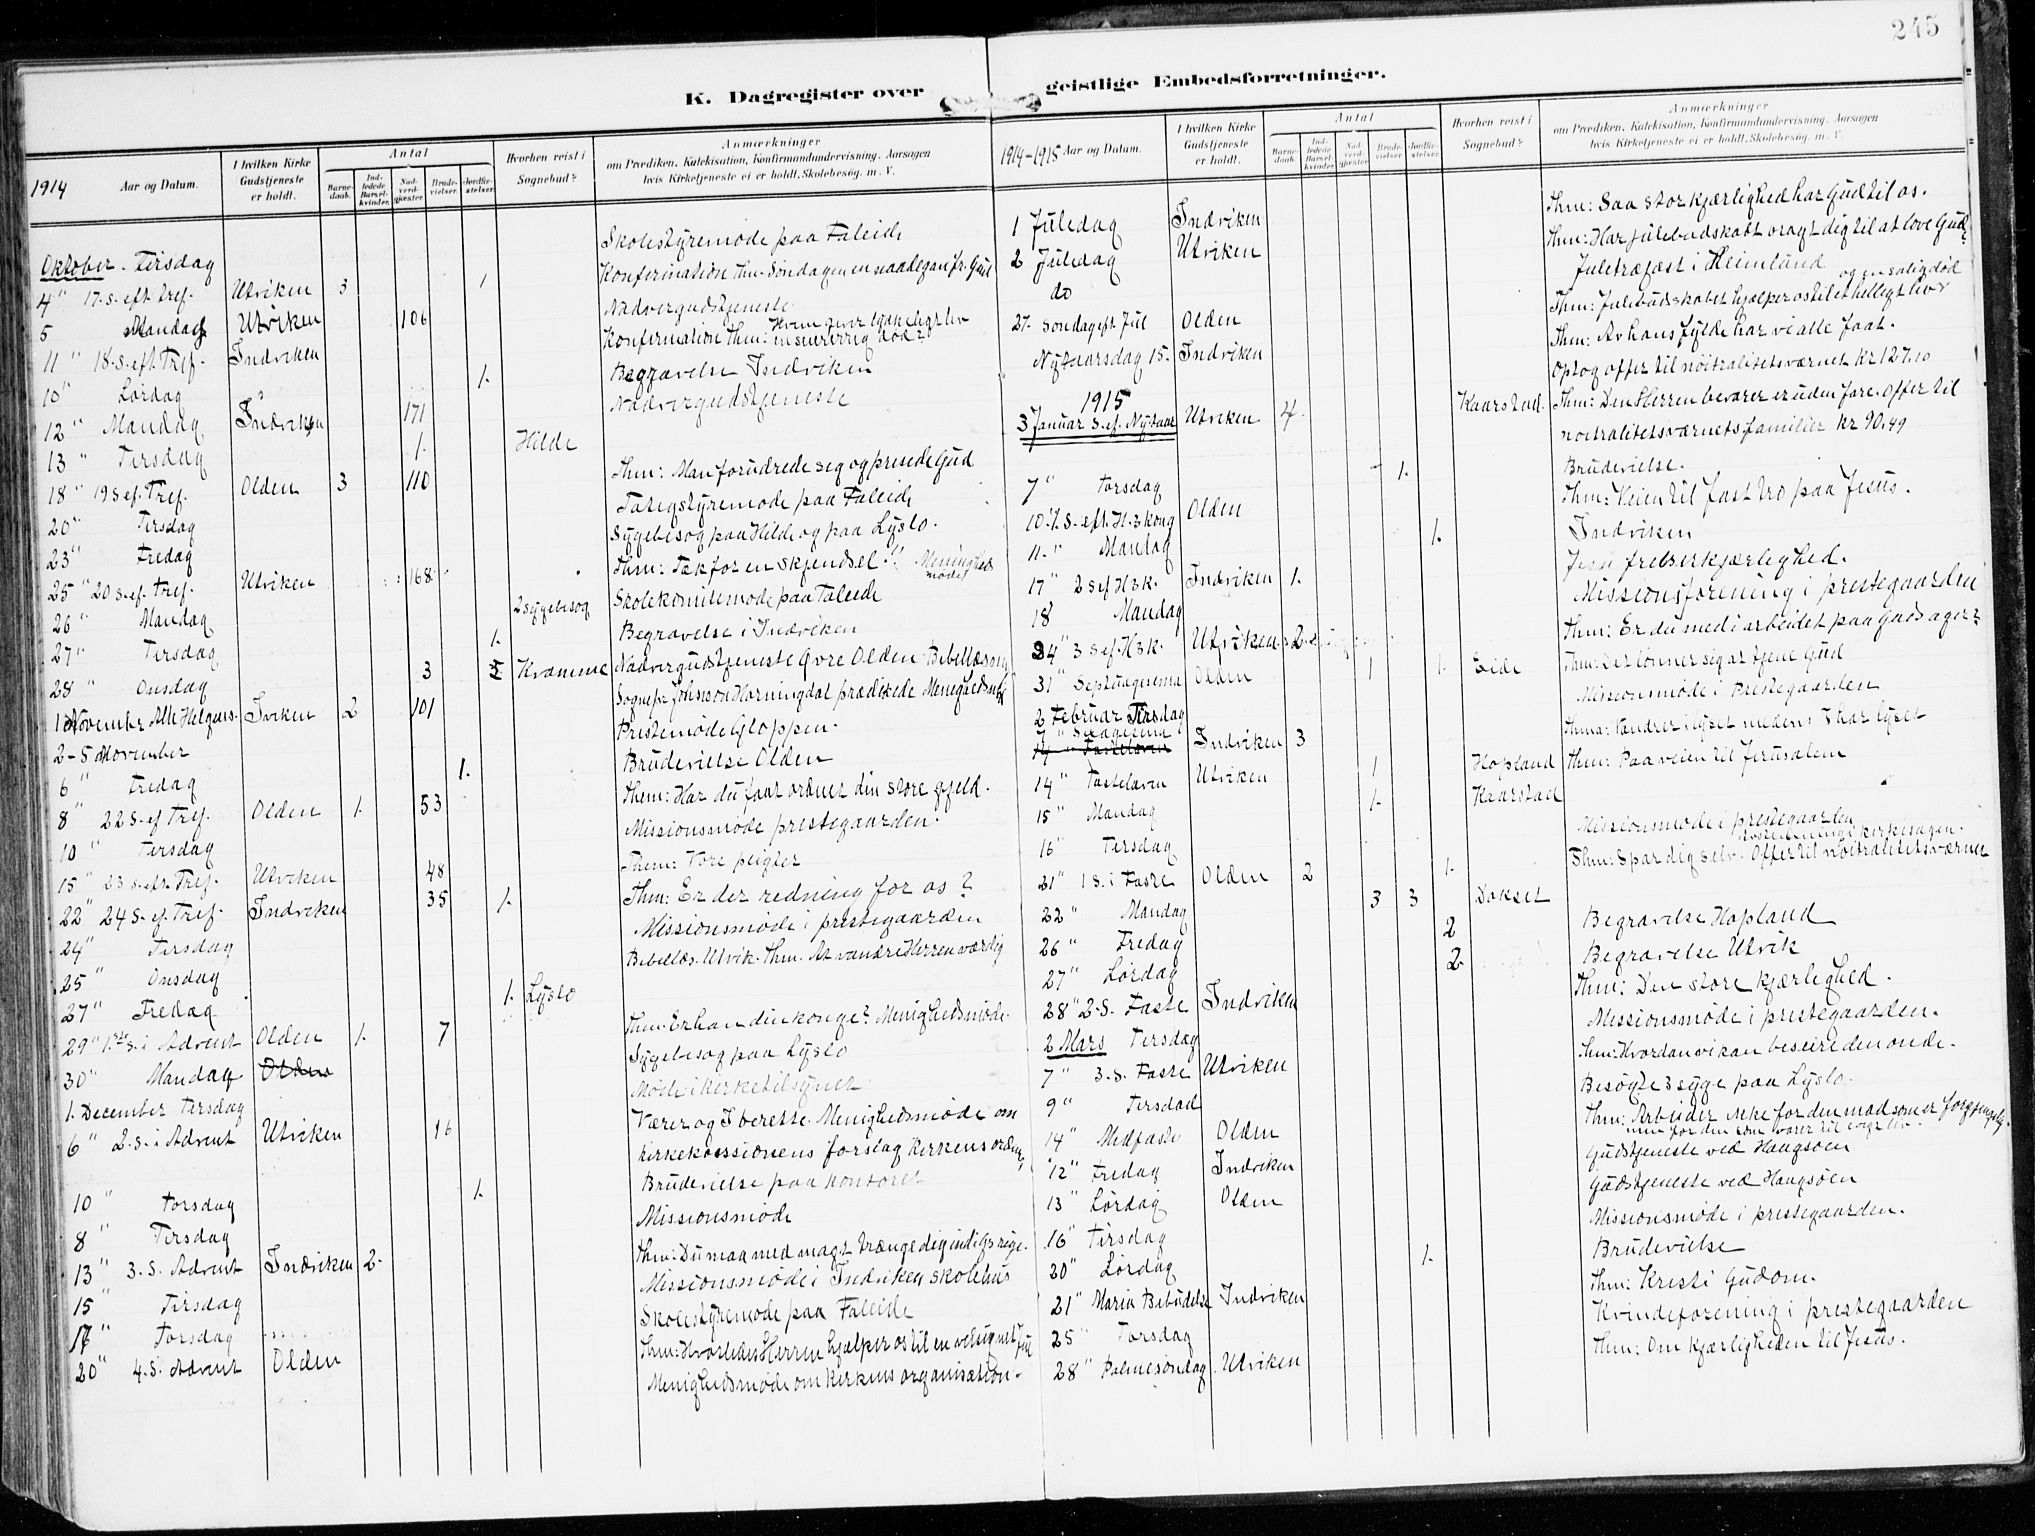 245
K. Dagregister over geistlige Embedsforretninger.
1914 Aar og Datum. I hvilken Kirke Gudstjeneste er holdt. Antal Barnedaab. Indledede Barselkvinder. Nadverdgjester Brudevielser Jordfæstelser Hvorhen reist i Sognebud? Anmærkninger om Prædiken, Katekisation, Konfirmandundervisning, Aarsagen hvis Kirketjeneste ei er holdt, Skolebesøg m. V.
Oktober. Tirsdag Skolestyremøde paa Faleide
4" 17. s. eft. Tref. Utviken 3 1 Konfirmation Thm: Søndagen en naadegave fr. Gud
5 Mandag Utviken 106 Nadvergudstjeneste
11 " 18. s. eft. Tref. Indviken Konfirmation Thm: Hvem giver
10" Lørdag 1. Begravelse Indviken
12" Mandag Indviken 171 Nadvergudstjeneste
13 " Tirsdag 1. Hilde
18 " 19 s. ef. Tref. Olden 3 110 Thm: Man forundrede seg og prisede Gud
20" Tirsdag Fatigstyremøde paa Faleide
23" Fredag Sygebesøg paa Hilde og paa Lyslo.
25 " 20 s. ef. Tref. Utviken 168 Thm: Tak for en skjendsel Menigheds møde
26 " Mandag 2 sygebesøg Skolekomitemøde paa Faleide
27" Tirsdag 1. Begravelse i Indviken
28 " Onsdag 3 Kramme Nadvergudstjeneste Øvre Olden Bibellæsning
1 November Alle Helgens. Iviken 2 101 Sognepr Johnson Horningdal prædikede Menighedsm
2-5 November Prestemøde Gloppen.
6 " Fredag 1. Brudevielse Olden
8" 22 s. ef Tref. Olden 1. 53 Them: Har du faat ordnet din store gjeld.
10 " Tirsdag Missionsmøde prestegaarden.
15 " 23 s. eft. Tref. Utviken 48 Them: Vore pligter
22 " 24 s. ef. Tref. Indviken 35 1. Thm: Er der redning for os?
24" Tirsdag Missionsmøde i prestegaarden
25 " Onsdag Bibellæs. Utvik. Thm. At vandre Herren værdig
27 " Fredag 1. Lyslo
29" 1ste s. i Advent Olden 1. 7 Thm: Er han din konge? Menighedsmøde.
30" Mandag Olden Sygebesøg paa Lyslo
1. December Tirsdag Møde i kirketilsynet
6" 2. s. i Advent Utviken 16 Værer og I berette. Menighedsmøde om
forslag kirkens
10 " Torsdag 1. Brudevielse paa kontoret
8 " Tirsdag Missionsmøde
13 " 3. s. Advent Indviken 2. Thm: Du maa med magt trænge dig ind i Gs rige.
15 " Tirsdag Missionsmøde i Indviken skolehus
17 " Torsdag Skolestyremøde paa Faleide
20" 4. s. Advent Olden Thm: Hvorledes Herren hjælper os til en velsignet Jul
Menighedsmøde om kirkens organisation.
1914-1915 Aar og Datum. I hvilken Kirke Gudstjeneste er holdt. Antal Barnedaab. Indledede Barselkvinder. Nadverdgjester Brudevielser Jordfæstelser Hvorhen reist i Sognebud? Anmærkninger om Prædiken, Katekisation, Konfirmandundervisning, Aarsagen hvis Kirketjeneste ei er holdt, Skolebesøg m. V.
1 Juledag Indviken Thm: Saa stor kjærlighed har Gud til os.
2 Juledag Utviken Thm: Har julebudskabt bragt dig til at love Gud?
do Juletræfest i Heimlund
27. søndag eft. Jul Olden Thm: Julebudskabet hjælper os til et helligt liv og en salig død
Nytaarsdag 15. Indviken Thm: Av hans fylde har vi alle faat.
Optog offer til nøitralitetsværnet kr 127.10
1915
3 Januar s. ef. Nytaar Utviken 4. Kaarstad. Thm: Den Herren bevarer er uden fare. Offer til
nøitralitetsværnets familier kr 90.49
7 " Torsdag 1. Brudevielse.
10. 1. s. eft. H. 3 kong Olden Thm: Veien til fast tro paa Jesus.
11. " Mandag 1. Indviken
17" 2 s ef H3k. Indviken 1. Jesu frelserkjærlighed.
18 Mandag Missionsforening i prestegaarden
24" 3 s ef. H3k. Utviken. 2 Thm: Er du med i arbeidet paa Guds ager?
31 " Septuagesima Olden 1. Eide Thm: Det lønner sig at tjene Gud
2 Februar Tirsdag Missionsmøde i Prestegaarden
7 " Sexagesima Indviken 3 Thma: Vandrer i lyset medens I har lyset
14" Fastelaven Utviken 1 Hopland Thm: Paa veien til Jerusalem
15" Mandag 1. Kaarstad
16" Tirsdag Missionsmøde i prestegaarden
21" 1 s. i Faste Olden 2 1. Thm: Spar dig selv. Offer til nøitralitetsværnet
22" Mandag 3 3 Dokset
26" Fredag 2 Begravelse Hopland
27" Lørdag 2. Begravelse Utvik
28" 2. s. Faste Indviken Thm: Den store kjærlighed.
2 Mars Tirsdag Missionsmøde i prestegaarden.
7" 3. s. Faste Utviken Thm: Hvordan vi kan beseire den onde.
9 " Tirsdad Besøgte 3 syge paa Lyslo.
14" Midfaste Olden Thm: Arbeider ikke for den mad som er forgjengelig.
men for den som varer til evigt liv.
12" Fredag Indviken Gudstjeneste ved Haugsøen
13" Lørdag Olden Gudstjeneste ved Haugsøen
16" Tirsdag Missionsmøde i prestegaarden.
20" Lørdag 1. Brudevielse
21" Maria Bebudelse Indviken Thm: Kristi Gudom.
25" Torsdag Kvindeforening i prestegaarden
28" Palmesøndag. Utviken Thm: Om kjærligheden til Jesus.